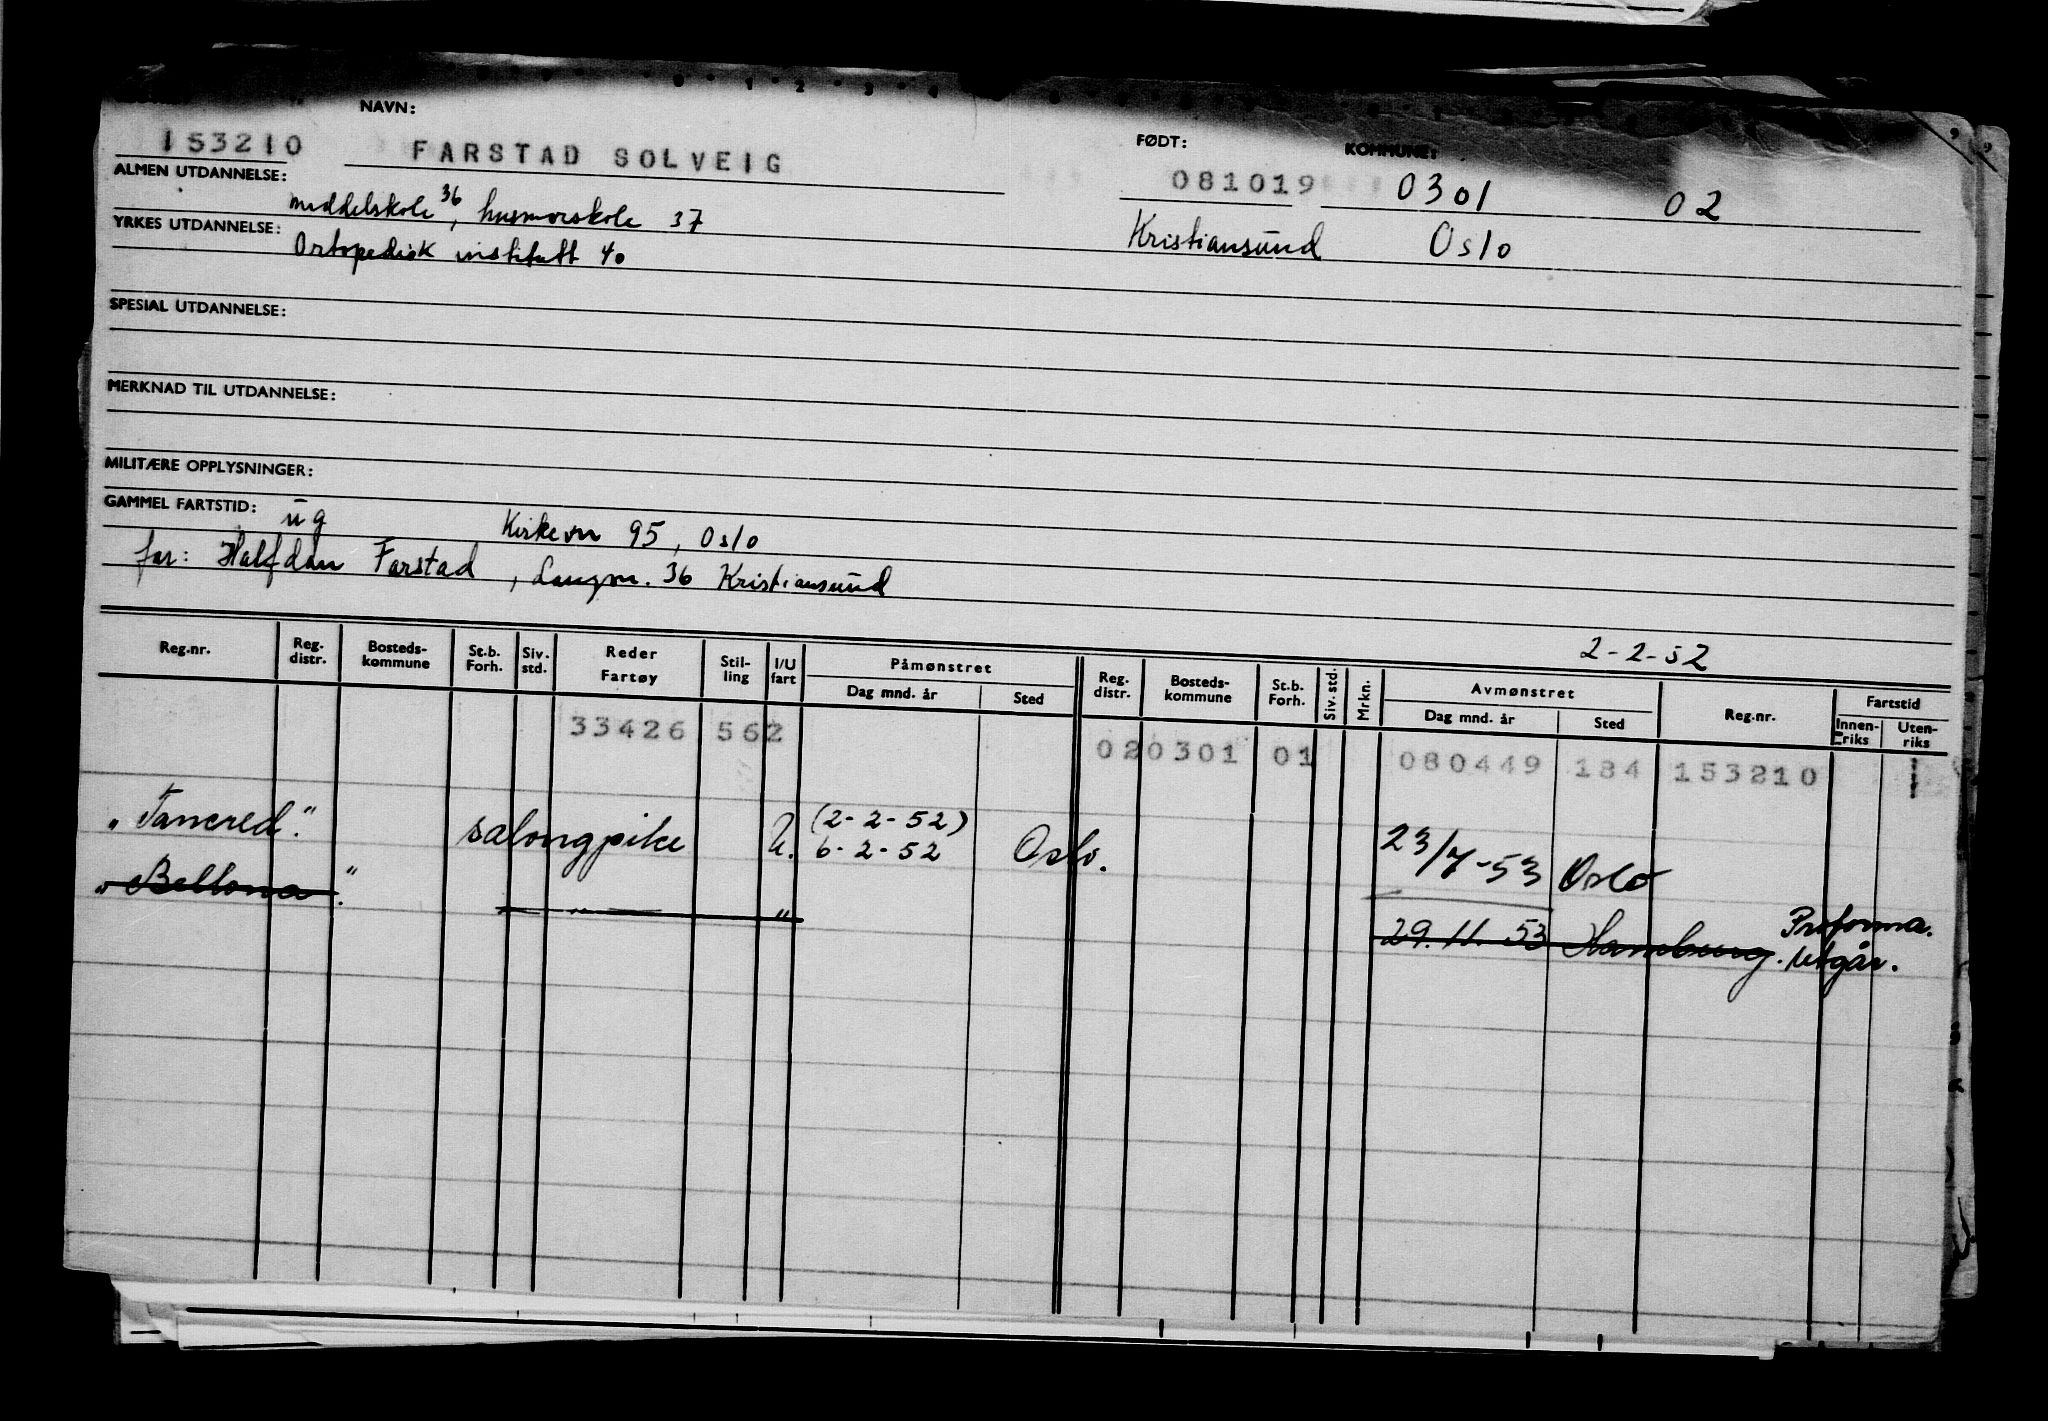 NAVN: FØDT: KOMMUNE:
153210 FARSTAD SOLVEIG 081019 0301 02
ALMEN UTDANNELSE: middelskole 36, husmorskole 37 Kristiansund Oslo
YRKES UTDANNELSE: Ortopedisk institutt 40
SPESIAL UTDANNELSE:
MERKNAD TIL UTDANNELSE:
MILITÆRE OPPLYSNINGER:
GAMMEL FARTSTID: ug Kirkevn 95, Oslo
far: Halfdan Farstad, Langvn. 36 Kristiansund
2-2-52
Reg.nr. Reg. distr. Bosteds-kommune St.b. Forh. Siv. std. Reder Fartøy Stil-ling I/U fart Påmønstret Dag mnd. år Sted Reg. distr. Bosteds-kommune St.b. Forh. Siv. std. Mrkn. Avmønstret Dag mnd. år Sted Reg.nr. Fartstid Innen-riks Uten-riks
33426 562 020301 01 080449 184 153210
"Tancred". salongpike U. (2-2-52) 6-2-52 Oslo. 23/7-53 Oslo
"Bellona". " " 29.11.53 Hamburg. Proforma. Utgår.